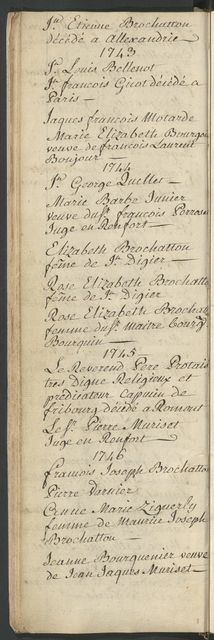 Sr. Etienne Brochatton
décédé a Allexandrie —
1743
Sr. Louis Bellenot
Sr. francois Girot décédé a
Paris —
Jaques francois Motarde
Marie Elizabeth Bourgon
veuve de francois Laurent
Boujour —
1744
Sr. George Quellet —
Marie Barbe Junier
veuve du Sr. francois Perroset
Juge en Renfort —
Elizabeth Brochatton
feme de Sr. Digier —
Rose Elizabeth Brochatt
feme de Sr. Digier
Rose Elizabeth Brochatt
femme du Sr. Maitre Bourg
Bourquin —
1745
Le Reverend Pere Protais
tres Digne Religieux et
predicateur Capucin de
fribourg décédé a Romont
Le Sr. Pierre Muriset
Juge en Renfort —
1746
francois Joseph Brochatton
Pierre Varnier
Anne Marie Ziguerly
femme de Maurice Joseph
Brochatton —
Jeanne Bourguenier veuve
de Jean Jaques Muriset —